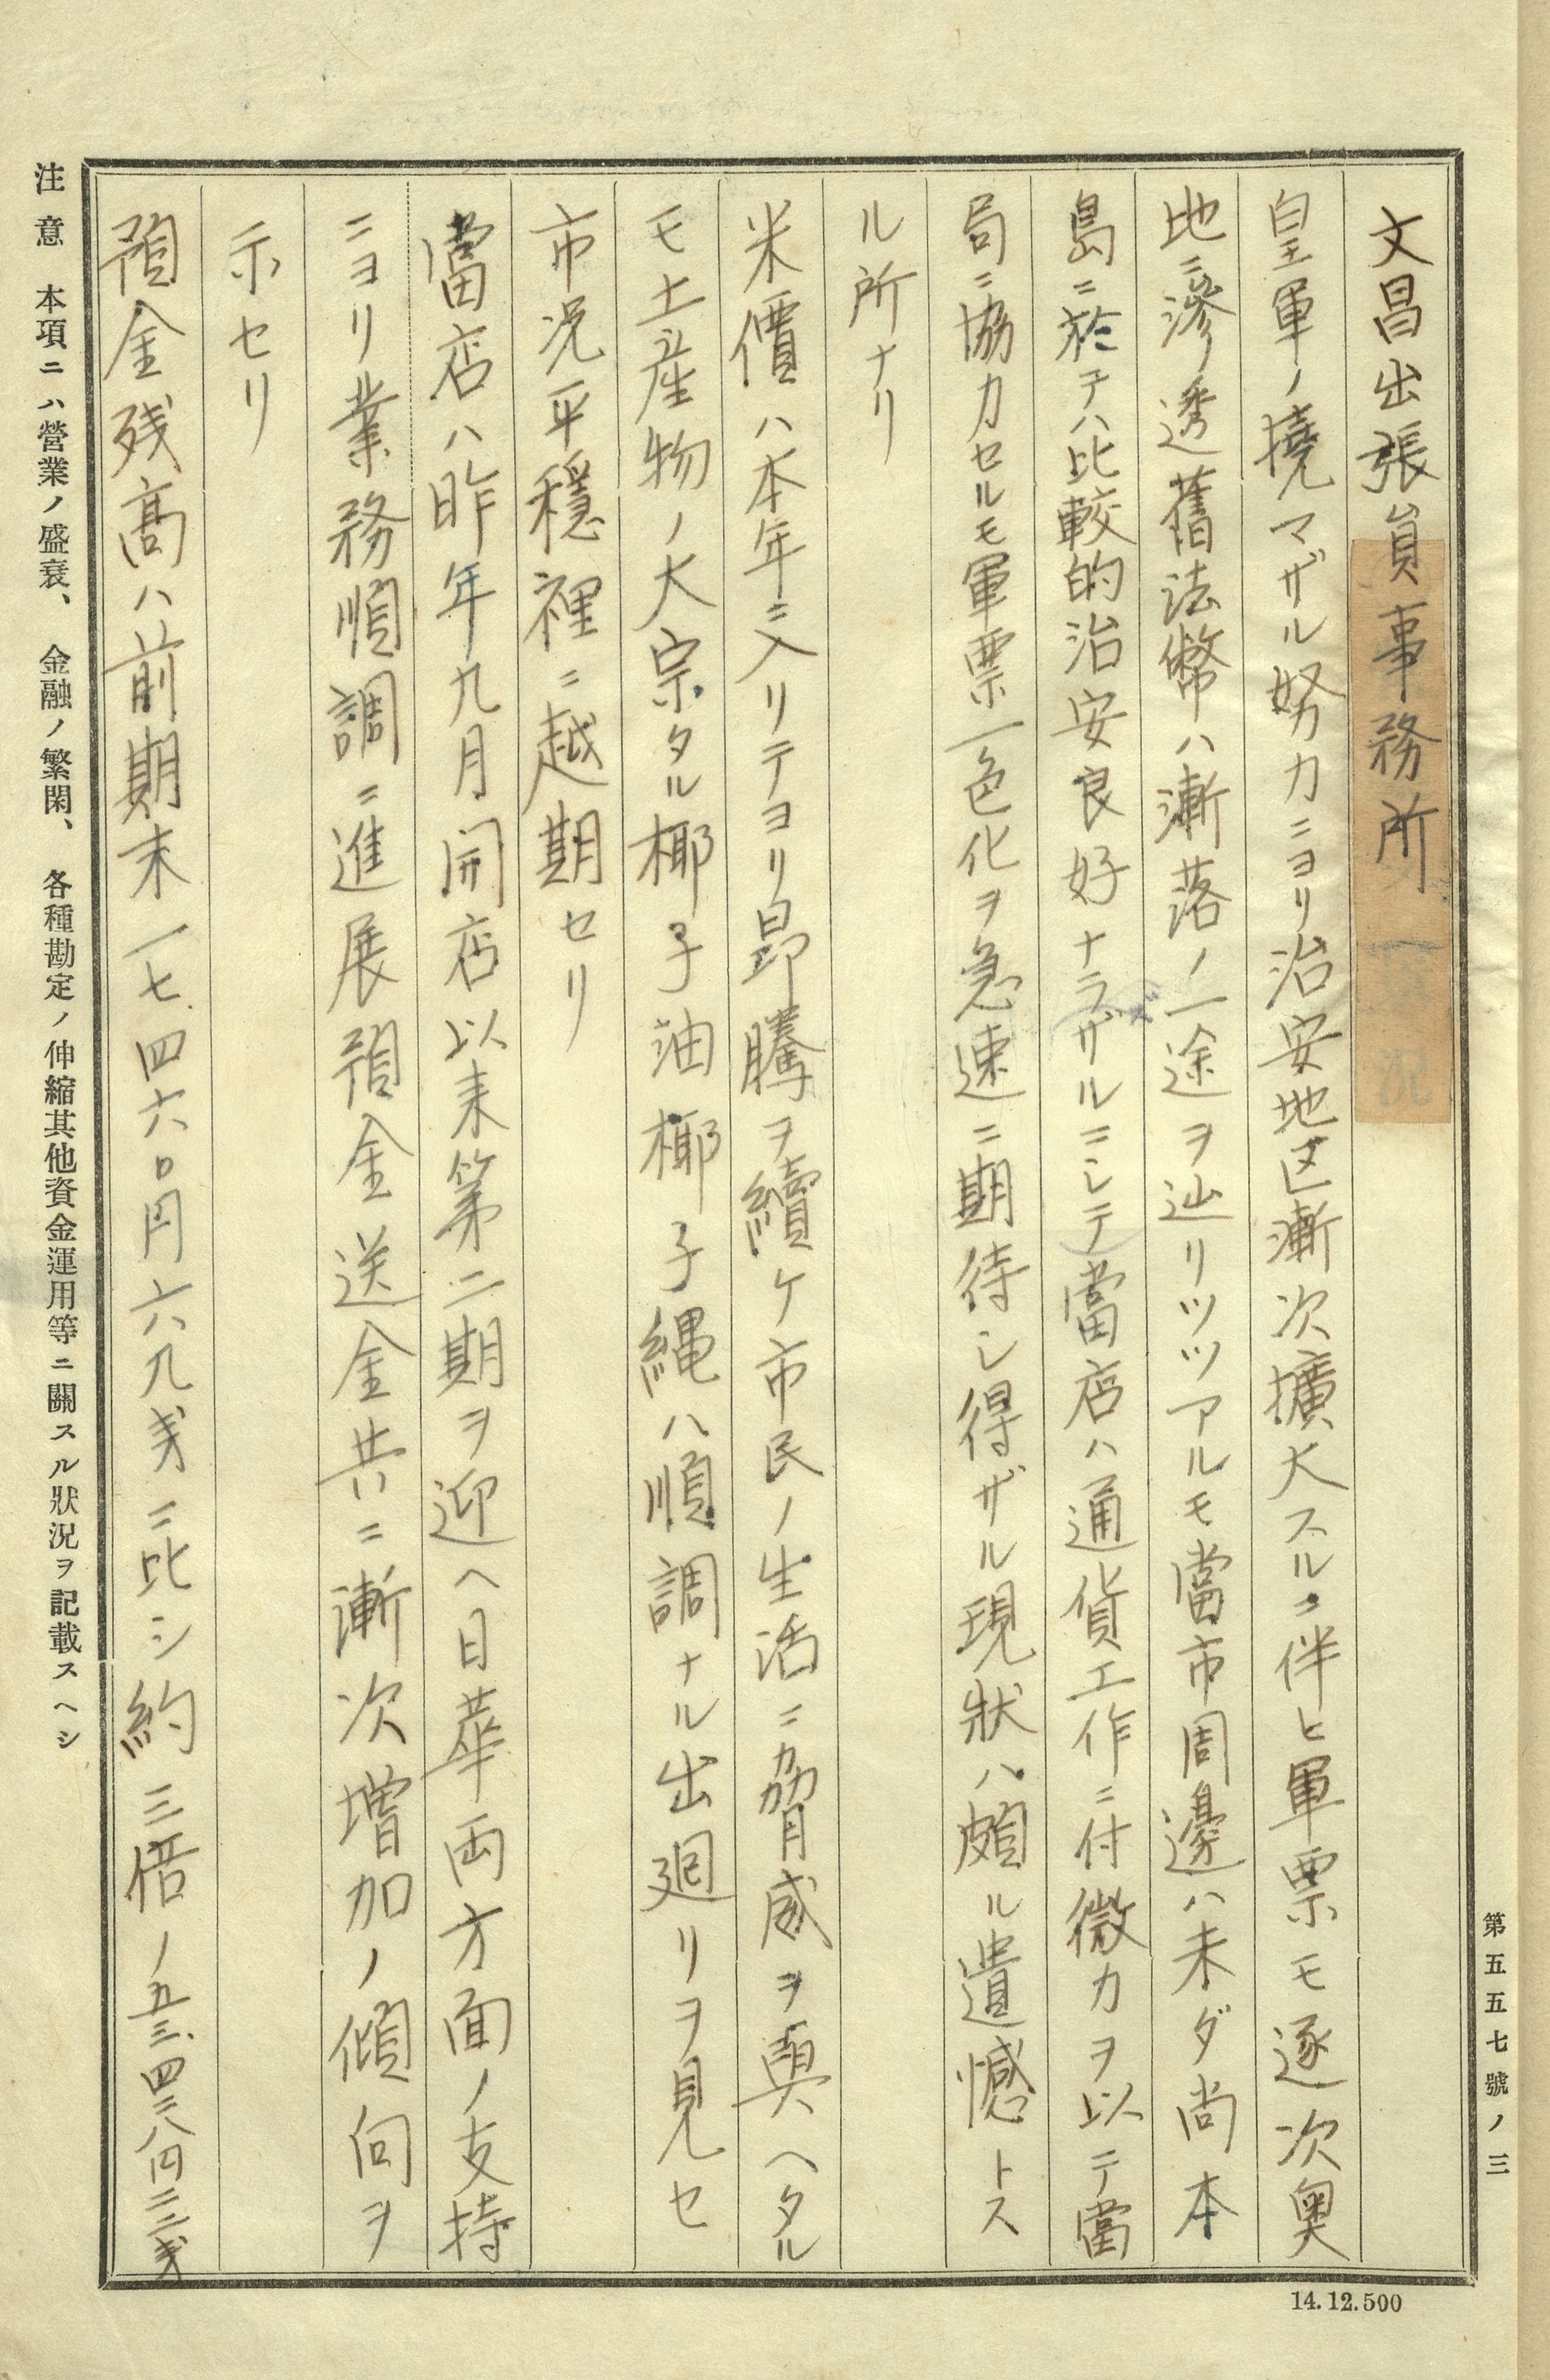 第五五七號ノ三
文昌出張員事務所
皇軍ノ撓マザル努力ニヨリ治安地区漸次擴大スルニ伴ヒ軍票モ逐次奥
地ニ滲透舊法幣ハ漸落ノ一途ヲ辿リツツアルモ當市周邊ハ未ダ尚本
島ニ於テハ比較的治安良好ナラザルニシテ當店ハ通貨工作ニ付微力ヲ以テ當
局ニ協力セルモ軍票一色化ヲ急速ニ期待シ得ザル現狀ハ頗ル遺憾トス
ル所ナリ
米價ハ本年ニ入リテヨリ昂騰ヲ續ケ市民ノ生活ニ脅威ヲ與ヘタル
モ土産物ノ大宗タル椰子油椰子縄ハ順調ナル出廻リヲ見セ
市況平穏裡ニ越期セリ
當店ハ昨年九月開店以来第二期ヲ迎ヘ日華両方面ノ支持
ニヨリ業務順調ニ進展預金送金共ニ漸次増加ノ傾向ヲ
示セリ
預金残高ハ前期末一七四六〇円六九戔ニ比シ約三倍ノ五三、四三八円二二戔
注意 本項ニハ營業ノ盛衰、金融ノ繁閑、各種勘定ノ伸縮其他資金運用等ニ關スル狀況ヲ記載スヘシ
14.12.500